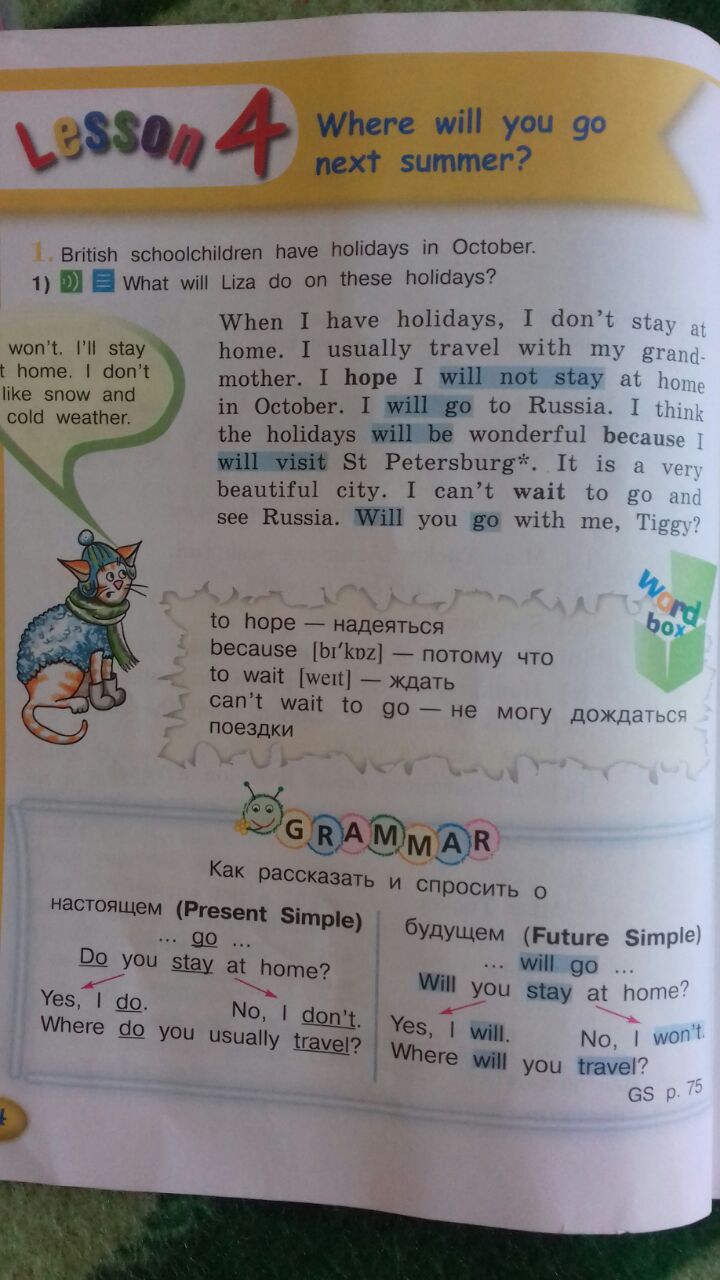 Lesson 4
Where will you go
next summer?
1. British schoolchildren have holidays in October.
1) What will Liza do on these holidays?
won't. I'll stay
t home. I don't
like snow and
cold weather.
When I have holidays, I don't stay at
home. I usually travel with my grand-
mother. I hope I will not stay at home
in October. I will go to Russia. I think
the holidays will be wonderful because I
will visit St Petersburg*. It is a very
beautiful city. I can't wait to go and
see Russia. Will you go with me, Tiggy?
word
box
to hope — надеяться
because [bɪ'kɒz] — потому что
to wait [weɪt] — ждать
can't wait to go — не могу дождаться
поездки
GRAMMAR
Как рассказать и спросить о
настоящем (Present Simple)
... go ...
Do you stay at home?
Yes, I do.
No, I don't.
Where do you usually travel?
будущем (Future Simple)
... will go ...
Will you stay at home?
Yes, I will.
No, I won't.
Where will you travel?
GS p. 75
4